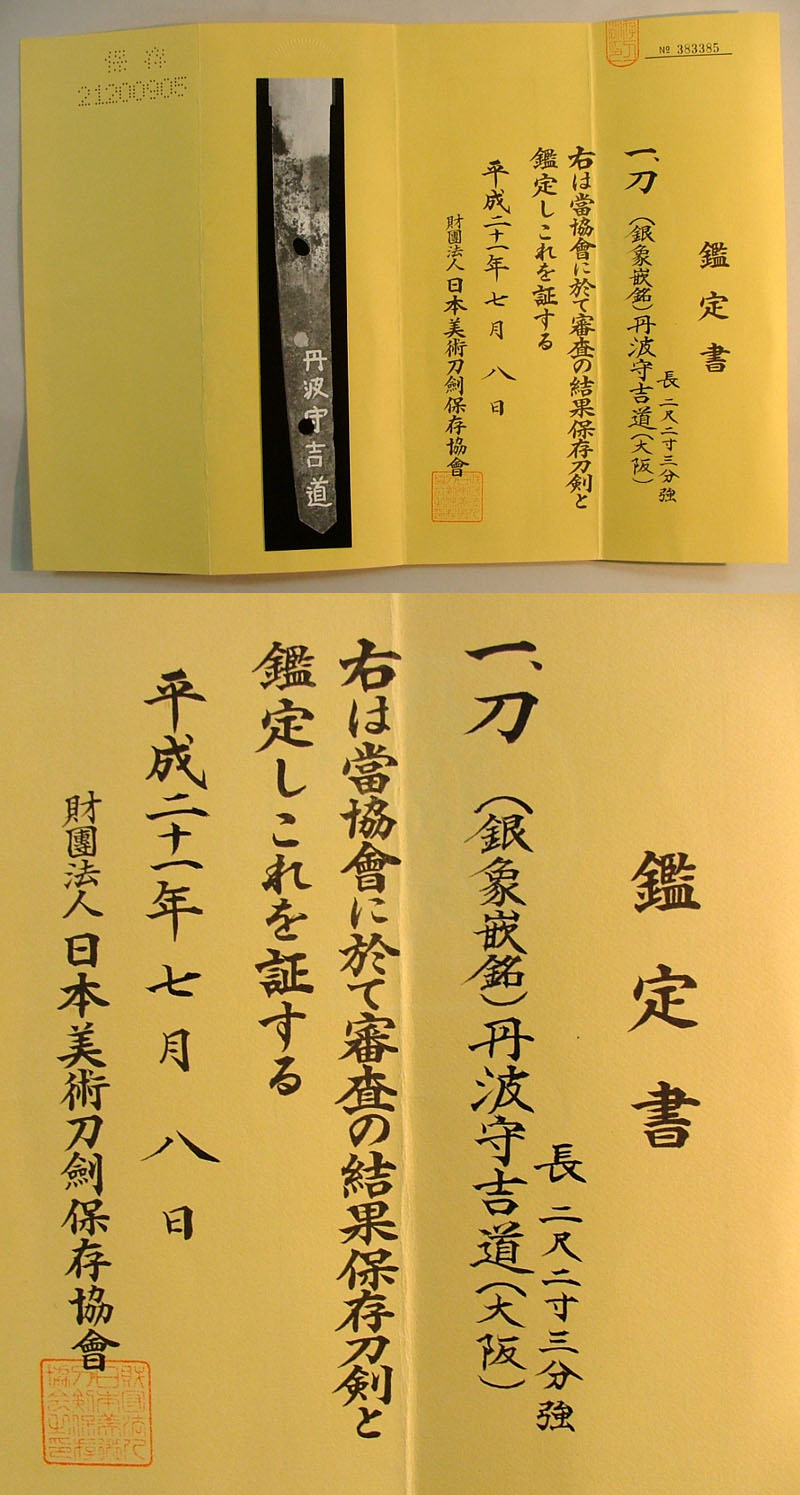 № 383385
鑑定書
一、刀 （銀象嵌銘）丹波守吉道（大阪）
長 二尺二寸三分強
右は當協會に於て審査の結果保存刀剣と
鑑定しこれを証する
平成二十一年七月八日
財團法人日本美術刀劍保存協會
丹波守吉道
保存
21200905
鑑定書
一、刀 （銀象嵌銘）丹波守吉道（大阪）
長 二尺二寸三分強
右は當協會に於て審査の結果保存刀剣と
鑑定しこれを証する
平成二十一年七月八日
財團法人日本美術刀劍保存協會